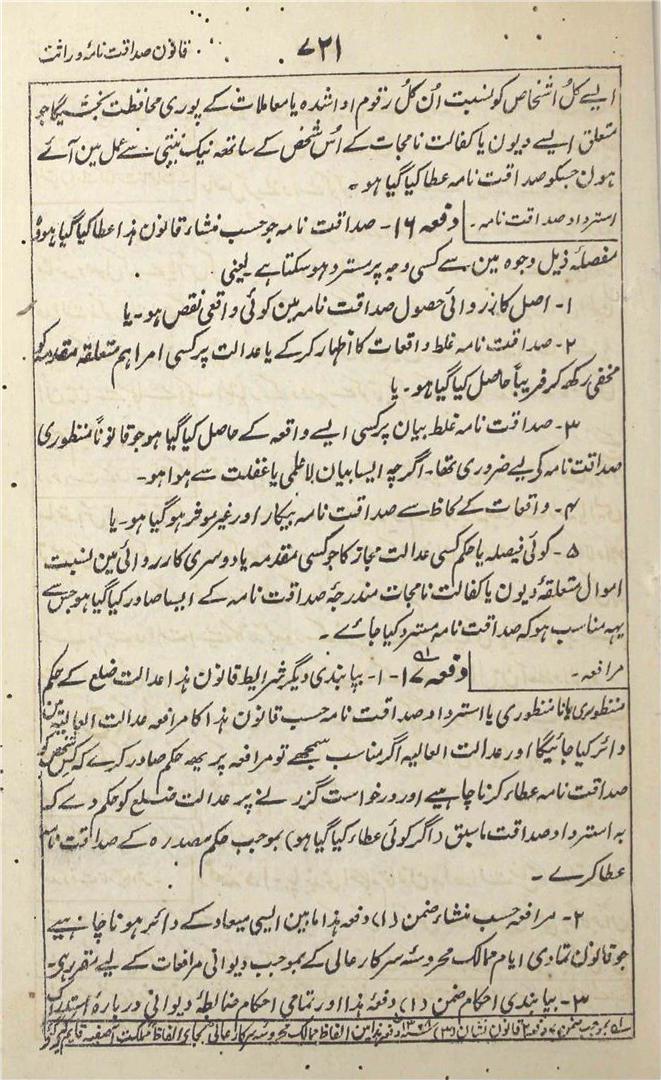 ۷۲۱
قانون صداقت نامۂ وراثت
ایسے کُل اشخاص کو بنسبت اُن کُل رقوم ادا شدہ یا معاملات کے پوری محافظت بخشیگا جو
متعلق ایسے دیون یا کفالت نامجات کے اُس شخص کے ساتھ نیک نیتی سے عمل مین آئے
ہون جسکو صداقت نامہ عطا کیا گیا ہو۔
استرداد صداقت نامہ۔ دفعہ ۱۶- صداقت نامہ جو حسب منشاء قانون ہذا عطا کیا گیا ہو وہ
مفصلۂ ذیل وجوہ مین سے کسی وجہ پر مسترد ہوسکتا ہے یعنی
۱- اصل کارروائی حصول صداقت نامہ مین کوئی واقعی نقص ہو۔ یا
۲- صداقت نامہ غلط واقعات کا اظہار کرکے یا عدالت پر کسی امر اہم متعلقہ مقدمہ کو
مخفی رکھ کر فریباً حاصل کیا گیا ہو۔ یا
۳- صداقت نامہ غلط بیان پر کسی ایسے واقعہ کے حاصل کیا گیا ہو جو قانوناً منظوری
صداقت نامہ کے لیے ضروری تھا۔ اگرچہ ایسا بیان لاعلمی یا غفلت سے ہوا ہو۔
۴- واقعات کے لحاظ سے صداقت نامہ بیکار اور غیر موثر ہو گیا ہو۔ یا
۵- کوئی فیصلہ یا حکم کسی عدالت مجاز کا جو کسی مقدمہ یا دوسری کارروائی مین بنسبت
اموال متعلقۂ دیون یا کفالت نامجات مندرجۂ صداقت نامہ کے ایسا صادر کیا گیا ہو جس سے
یہہ مناسب ہو کہ صداقت نامہ مسترد کیا جائے۔
مرافعہ۔ دفعہ ۱۷- ۱- بپابندی دیگر شرایط قانون ہذا عدالت ضلع کے حکم
منظوری یا نامنظوری یا استرداد صداقت نامہ حسب قانون ہذا کا مرافعہ عدالت العالیہ مین
دائر کیا جائیگا اور عدالت العالیہ اگر مناسب سمجھے تو مرافعہ پر یہہ حکم صادر کرے کہ کس شخص کو
صداقت نامہ عطاء کرنا چاہیے اور درخواست گزرلنے پر عدالت ضلع کو حکم دے کہ
بہ استرداد صداقت ماسبق (اگر کوئی عطاء کیا گیا ہو) بموجب حکم مصدرہ کے صداقت نامہ
عطا کرے۔
۲- مرافعہ حسب منشاء ضمن (۱) دفعہ ہذا مابین ایسی میعاد کے دائر ہونا چاہیے
جو قانون تمادی ایام ممالک محروسۂ سرکار عالی کے بموجب دیوانی مرافعات کے لیے مقرر ہے۔
۳- بپابندی احکام ضمن (۱) دفعۂ ہذا اور تمامی احکام ضابطۂ دیوانی دربارۂ
بموجب ضمن دفعہ ۲ قانون نشان (۳) الفاظ ممالک محروسہ سرکار عالی بجائے الفاظ مملکت آصفیہ قائم